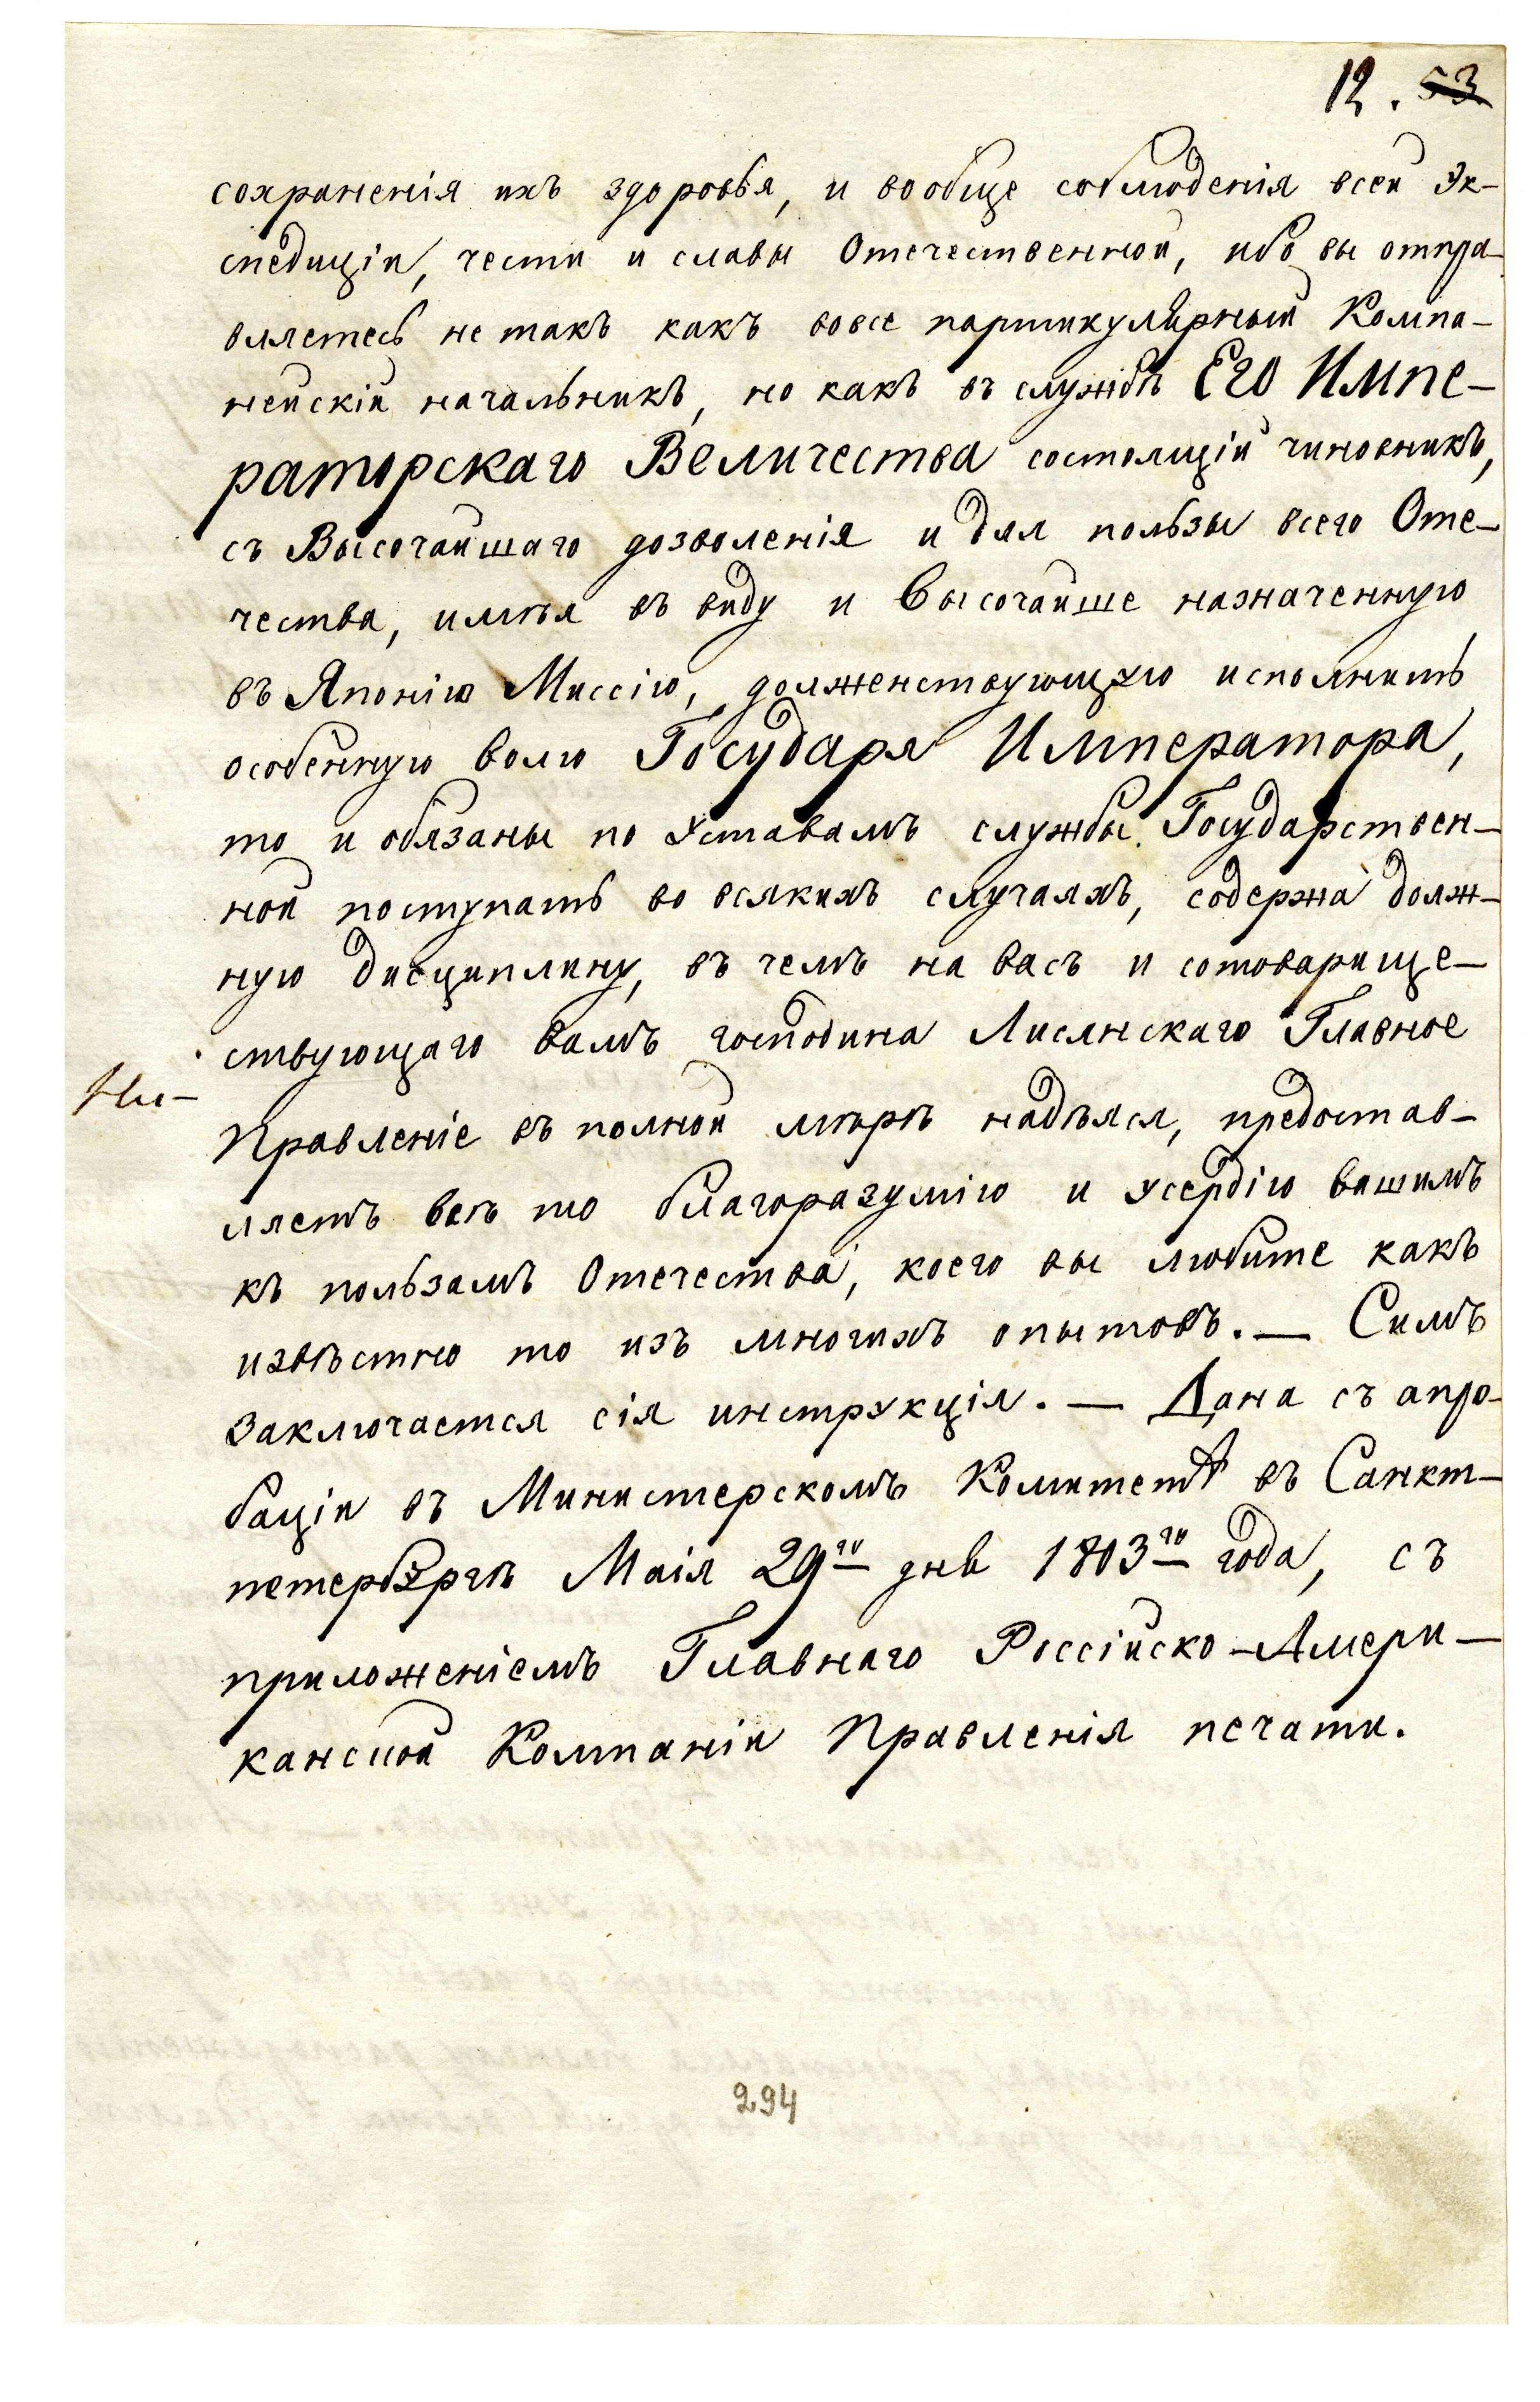 12. 53
сохраненія ихъ здоровья, и вообще соблюденія всей Эк-
спедиціи, чести и славы Отечественной, ибо вы отпра-
вляетесь не такъ какъ вовсе партикулярный Компа-
нейскій начальникъ, но какъ въ службѣ Его Импе-
раторскаго Величества состоящій чиновникъ,
съ Высочайшаго дозволенія и для пользы всего Оте-
чества, имѣя въ виду и Высочайше назначенную
въ Японію Миссію, долженствующую исполнить
особенную волю Государя Императора,
то и обязаны по Уставамъ службы Государствен-
ной поступать во всякихъ случаяхъ, содержа долж-
ную дисциплину, въ чемъ на васъ и сотоварище-
ствующаго вамъ господина Лисянскаго Главное
Правленіе въ полной мѣрѣ надѣяся, предостав-
ляетъ всѣ то благоразумію и усердію вашимъ
къ пользамъ Отечества, коего вы любите какъ
извѣстно то изъ многихъ опытовъ. — Симъ
заключается сія инструкція. — Дана съ апро-
баціи въ Министерскомъ Комитетѣ въ Санкт-
петербургѣ Маія 29го дня 1803го года, съ
приложеніемъ Главнаго Россійско-Амери-
канской Компаніи Правленія печати.
294